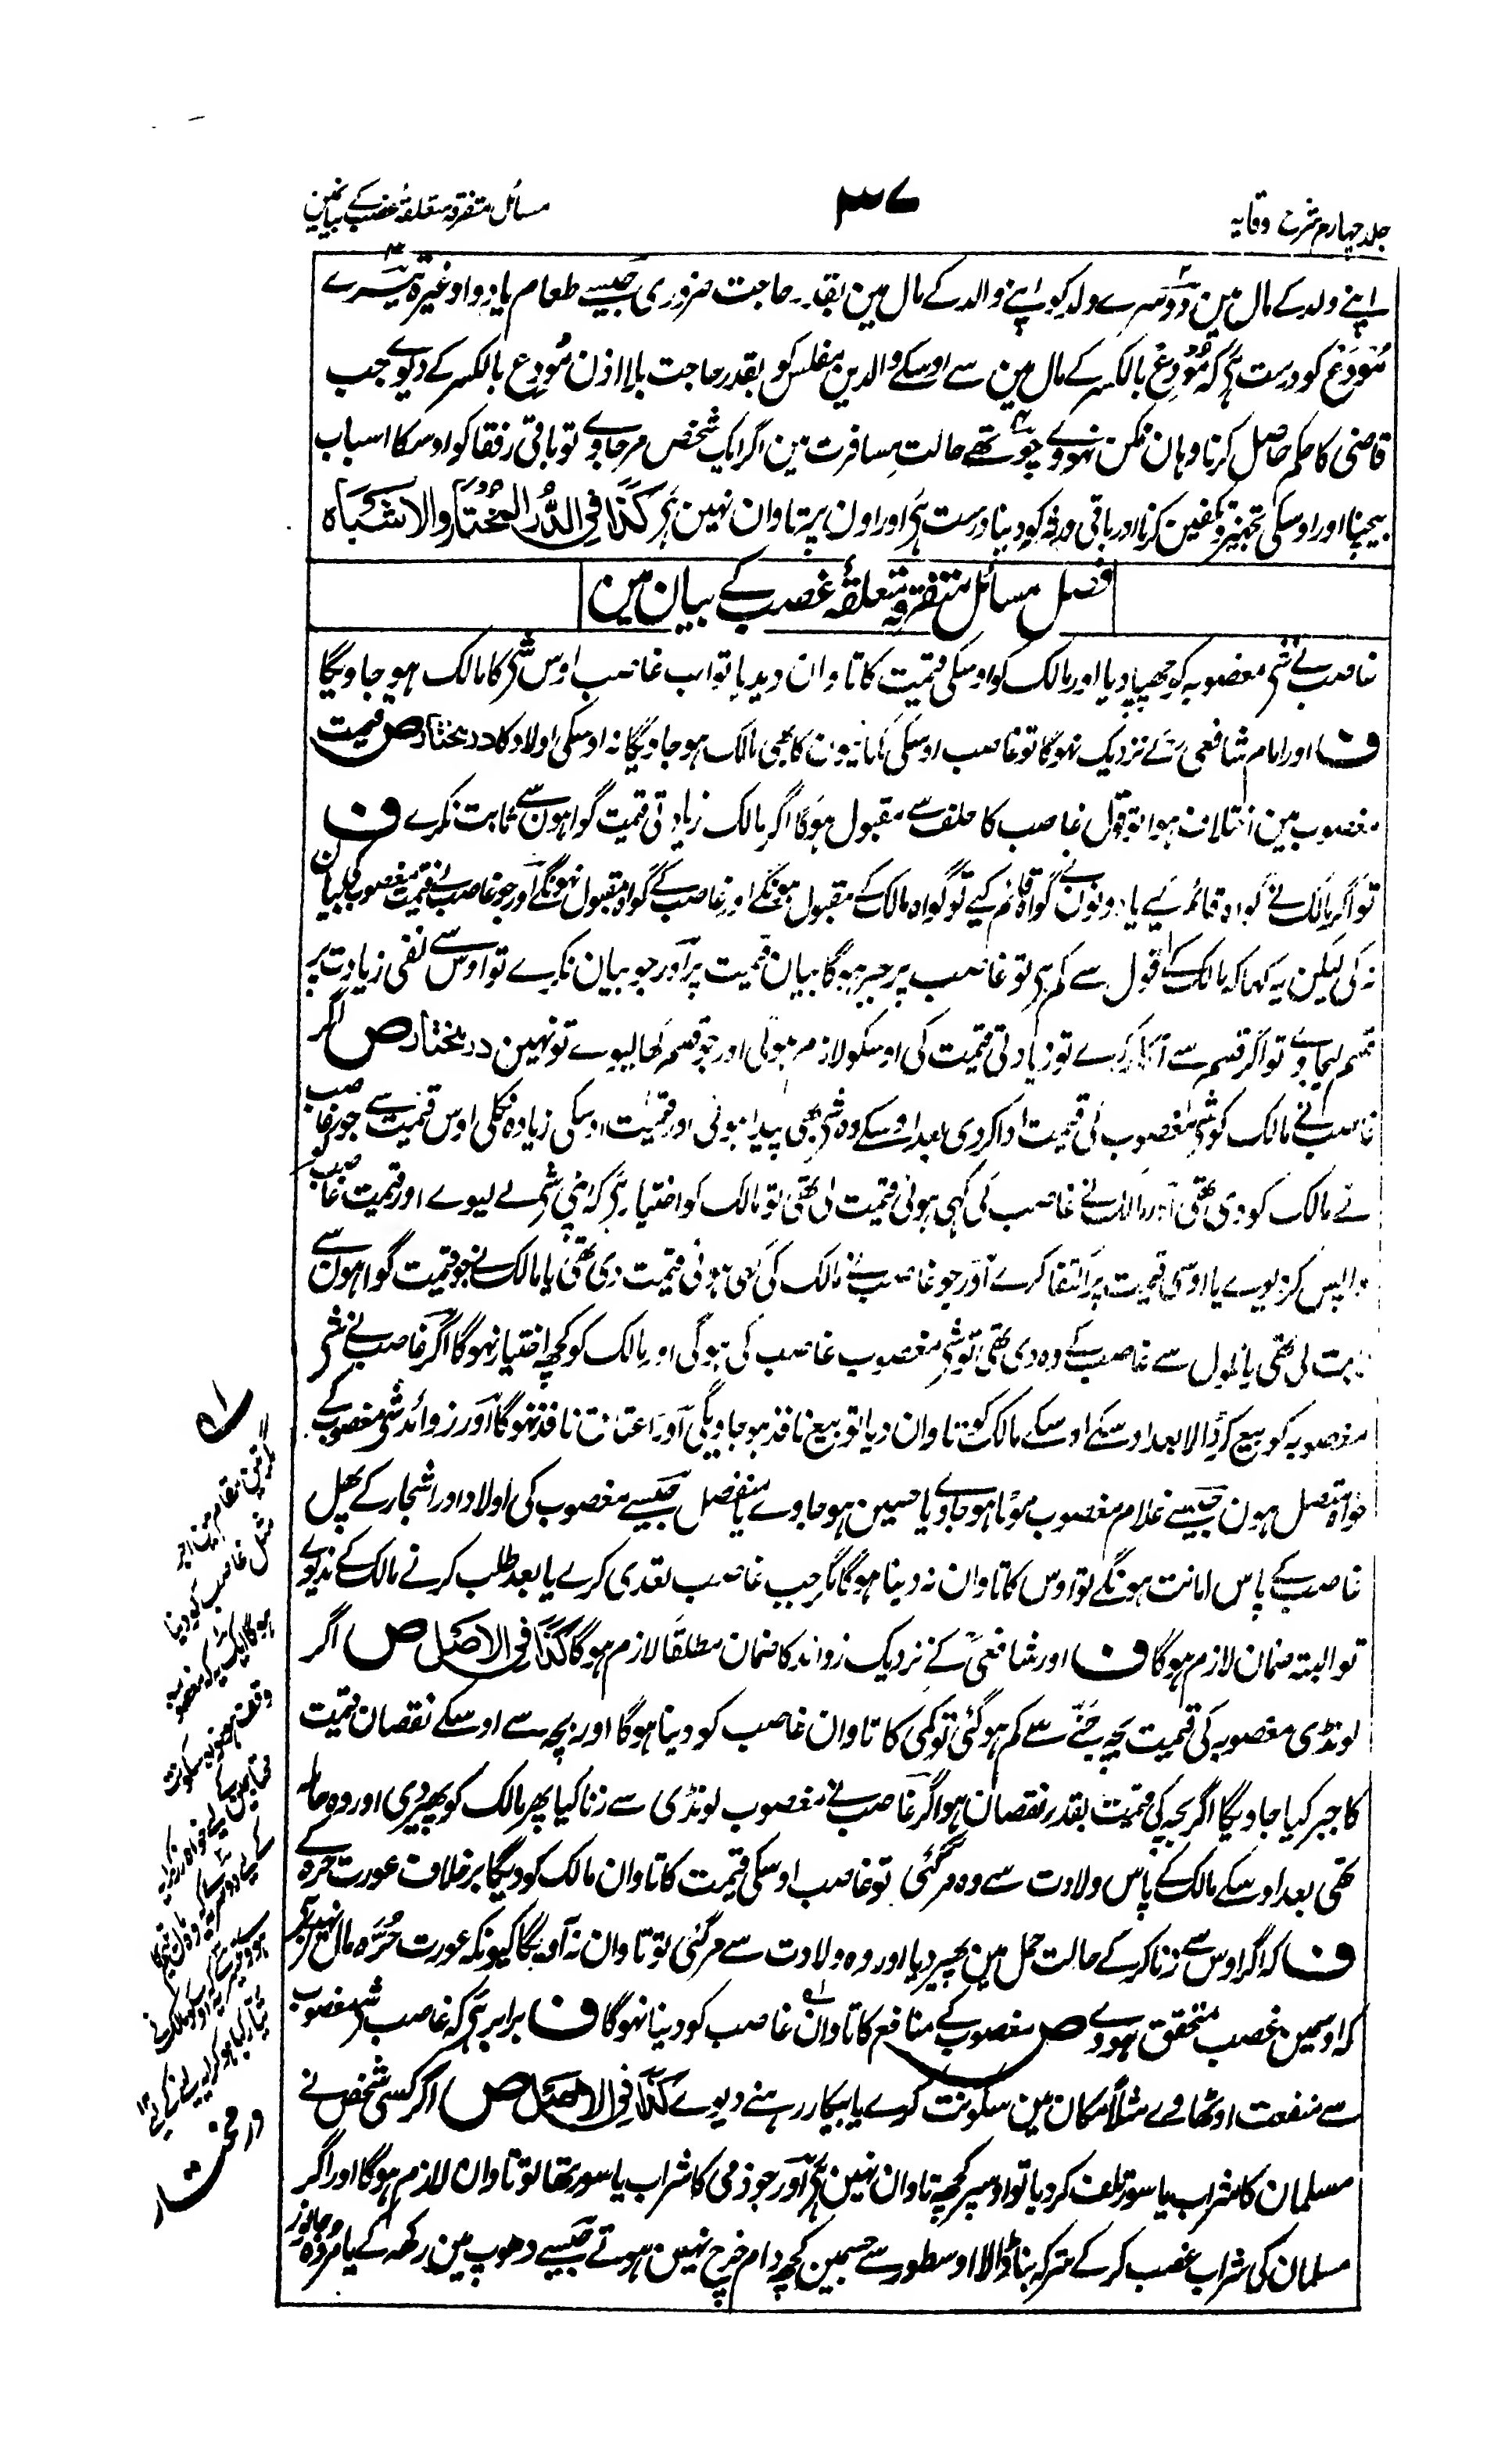 جلد چہارم شرح وقایہ
۳۷
مسائل متفرقہ متعلقۂ غصب کے بیانمین
اپنے ولد کے مال مین دوسرے ولد کو اپنے والد کے مال مین بقدر حاجت ضروری جیسے طعام یا دوا وغیرہ تیسرے
مُودَع کو درست ہے کہ مُودِع بالکسر کے مال مین سے اوسکے والدین مفلس کو بقدر حاجت بلا اذن مُودِع بالکسر کے دیوے جب
قاضی کا حکم حاصل کرنا وہان ممکن نہووے چوتھے حالت مسافرت مین اگر ایک شخص مر جاوے تو باقی رفقا کو اوسکا اسباب
بیچنا اور اوسکی تجہیز و تکفین کرنا اور باقی ورثہ کو دینا درست ہے اور اون پر تاوان نہین ہے كَذَا فِي الدُّرِّ الْمُخْتَارِ وَالْاَشْبَاهِ
فصل مسائل متفرقہ متعلقۂ غصب کے بیان مین
غاصب نے شے مغصوبہ کو چھپا دیا اور مالک کو اوسکی قیمت کا تاوان دیدیا تو اب غاصب اوس شے کا مالک ہو جاویگا
ف اور امام شافعی رح کے نزدیک نہوگا تو غاصب اوسکی کمائیون کا بھی مالک ہو جاویگا نہ اوسکی اولاد کا در مختار ص قیمت
مغصوب مین اختلاف ہوا تو قول غاصب کا حلف سے مقبول ہوگا اگر مالک زیادتی قیمت گواہون سے ثابت نکرے ف
تو اگر مالک نے گواہ قائم کیے یا دونون نے گواہ قائم کیے تو گواہ مالک کے مقبول ہونگے اور غاصب کے گواہ مقبول نہونگے اور جو غاصب نے قیمت مغصوب کی بیان
نہ کی لیکن یہ کہا کہ مالک کے قول سے کم ہے تو غاصب پر جبر ہوگا بیان قیمت پر اور جو بیان نکرے تو اوس سے نفی زیادت پر
قسم لیجاوے تو اگر قسم سے انکار کرے تو زیادتی قیمت کی اوسکو لازم ہوگی اور جو قسم کھا لیوے تو نہین در مختار ص اگر
غاصب نے مالک کو شے مغصوب کی قیمت ادا کر دی بعد اوسکے وہ شے بھی پیدا ہوئی اور قیمت اوسکی زیادہ نکلی اوس قیمت سے جو غاصب
نے مالک کو دی تھی اور مالک نے غاصب کی کہی ہوئی قیمت لی تھی تو مالک کو اختیار ہے کہ اپنی شے لے لیوے اور قیمت غاصب کو
واپس کر دیوے یا اوسی قیمت پر اکتفا کرے اور جو غاصب نے مالک کی کہی ہوئی قیمت دی تھی یا مالک نے جو قیمت گواہون سے
ثابت کی تھی یا نکول سے غاصب کے وہ دی تھی تو شے مغصوب غاصب کی ہوگی اور مالک کو کچھ اختیار نہوگا اگر غاصب نے شے
مغصوبہ کو بیع کر ڈالا بعد اوسکے اوسکے مالک کو تاوان دیا تو بیع نافذ ہو جاویگی اور اعتاق نافذ نہوگا اور زوائد شے مغصوب کے
خواہ متصل ہون جیسے غلام مغصوب موٹا ہو جاوے یا حسین ہو جاوے یا منفصل جیسے مغصوب کی اولاد اور اشجار کے پھل
غاصب کے پاس امانت ہونگے تو اوس کا تاوان نہ دینا ہوگا مگر جب غاصب تعدی کرے یا بعد طلب کرنے مالک کے ندیوے
تو البتہ ضمان لازم ہوگا ف اور شافعیؒ کے نزدیک زوائد کا ضمان مطلقًا لازم ہوگا كَذَا فِي الْاَصْلِ ص اگر
لونڈی مغصوبہ کی قیمت بچہ جننے سے کم ہو گئی تو کمی کا تاوان غاصب کو دینا ہوگا اور بچہ سے اوسکے نقصان قیمت
کا جبر کیا جاویگا اگر بچہ کی قیمت بقدر نقصان ہو اگر غاصب نے مغصوب لونڈی سے زنا کیا پھر مالک کو پھیر دی اور وہ حاملہ
تھی بعد اوسکے مالک کے پاس ولادت سے وہ مر گئی تو غاصب اوسکی قیمت کا تاوان مالک کو دیگا برخلاف عورت حرہ کے
ف کہ اگر اوس سے زنا کرکے حالت حمل مین پھیر دیا اور وہ ولادت سے مر گئی تو تاوان نہ آویگا کیونکہ عورت حُرّہ مال نہین ہے
کہ اوسمین غصب متحقق ہووے ص مغصوب کے منافع کا تاوان غاصب کو دینا نہوگا ف برابر ہے کہ غاصب شے مغصوب
سے منفعت اوٹھاوے مثلًا مکان مین سکونت کرے یا بیکار رہنے دیوے كَذَا فِي الْاَصْلِ ص اگر کسی شخص نے
مسلمان کا شراب یا سور تلف کر دیا تو اوسپر کچھ تاوان نہین ہے اور جو ذمی کا شراب یا سور تھا تو تاوان لازم ہوگا اور اگر
مسلمان کی شراب غصب کرکے سرکہ بنا ڈالا اوسطور سے جسمین کچھ دام خرچ نہین ہوتے جیسے دھوپ مین رکھہ کے یا مردہ جانور
مگر تین مقام مین اجر
مثل غاصب کو دینا
ہوگا ایک یہ کہ مغصوب
وقف ہو
کے لیے دوسرے
در مختار